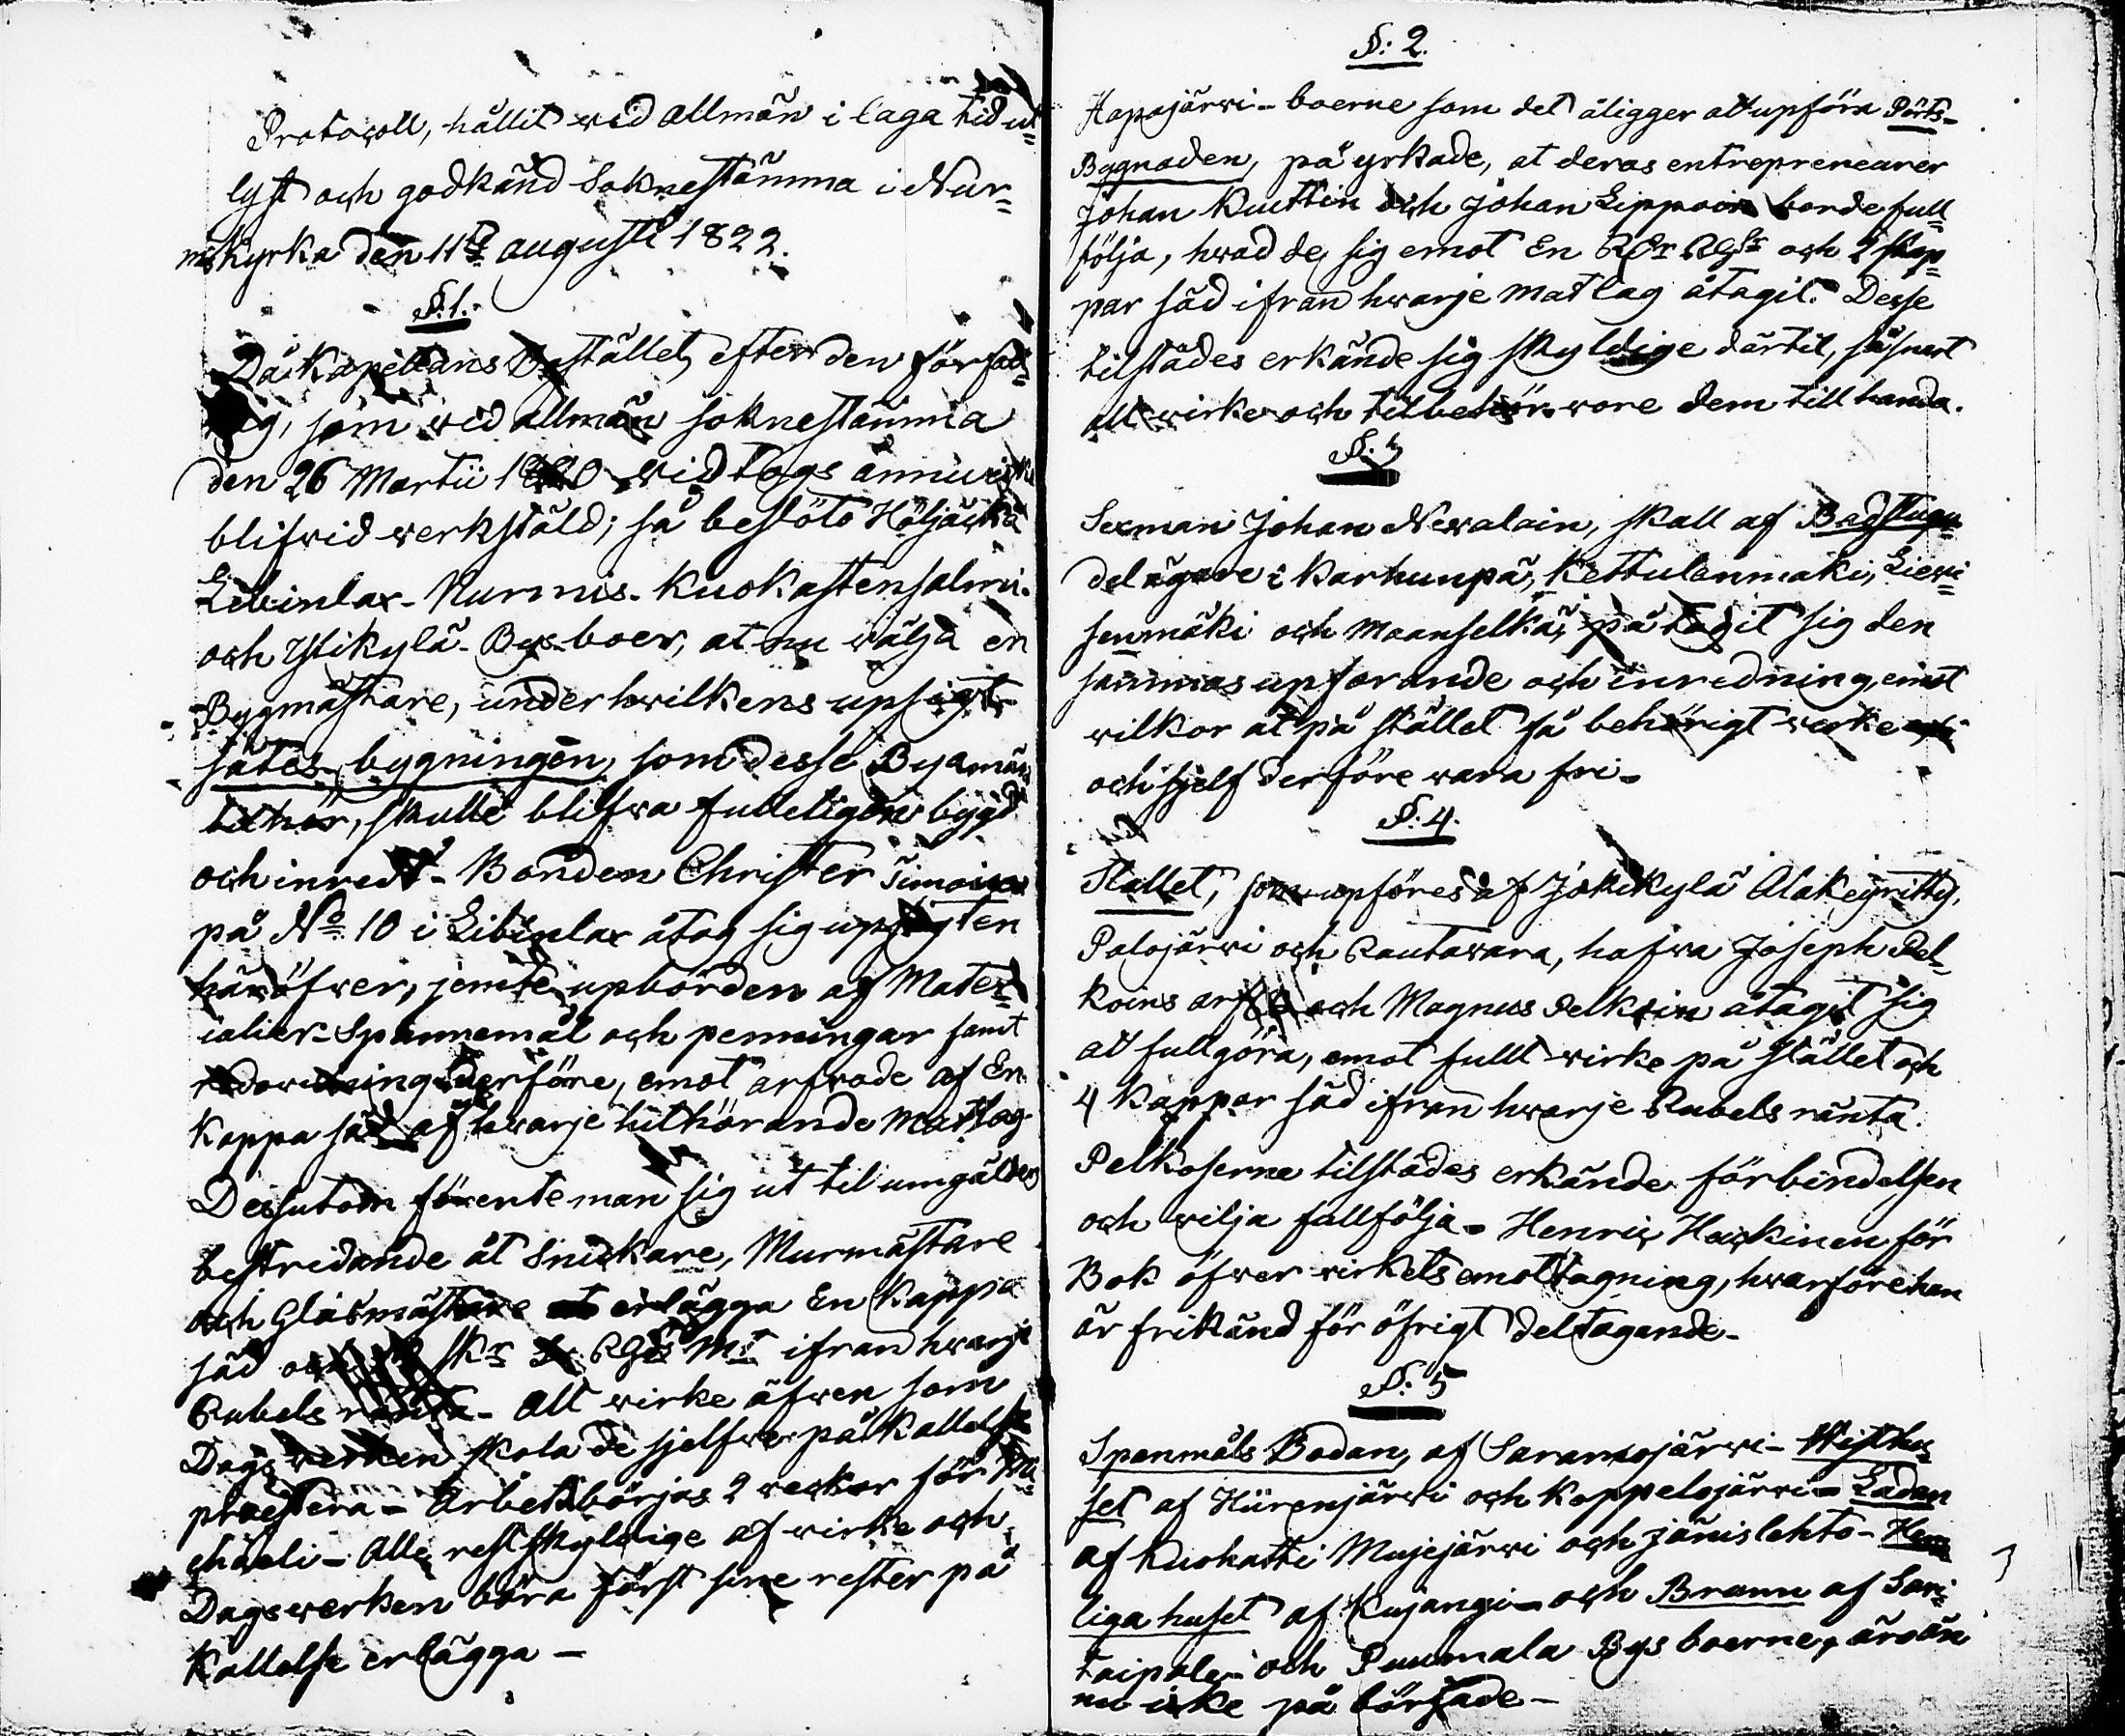 Protocoll, hållit wid allmän i laga tid ut=
lyst och godkänd Soknestämma i Nur=
mis kyrka den 11te augusti 1822.
§. 1.
Då Kapellans Bostället, efter den författ=
ning, som wid allmän soknestämma
den 26 Martii 1820 widtogs ännu icke
blifwid werkstäld; så beslöto Höljäckä
Libinlax- Nurmis- Kuokastensalmi-
och Ylikylä- Bys-boer, at nu wälja en
Bygmästare, under hwilkens upsigt
sätes-bygningen, som desse Byamän
tilhör, skulle blifwa fulleligen bygd
och inredt- Bonden Christer Timoinen
på No 10 i Libinlax åtog sig upsigten
häröfwer, jemte upbörden af Mater=
ialier- Spannemål och penningar samt
redowisning derföre, emot arfwode af En
Kappa säd af hwarje hithörande Matlag
Dessutom förente man sig ut til umgälders
bestridande åt Snickare, Murmästare
och Glasmästare at erlägga En Kappa
säd och skr RGs Mt ifrån hwarje
Rubels ränta- Alt wirke äfwen som
Dagswerken skola de sjelfwe på kallelse
præstera- Arbetet börjas 2 weckor för Mi=
chaeli- Alle restskyldige af wirke och
Dagswerken böra först sine rester på
Kallelse erlägga -
§: 2.
Hapajärwi-boerne som det åligger at upföra Pörts-
Bygnaden, på yrkade, at deras entreprenearer
Johan Kuittin och Johan Lippoin borde full=
följa, hwad de sig emot En Rr RGs och 2 kap=
par säd ifrån hwarje matlag åtagit. Desse
tilstädes erkände sig skyldige därtil, såsnart
alt wirke och tilbehör wore dem till handa.
§. 3
Sexman Johan Newalain, skall af Badstugu
delägare i Karhunpä, Kettulenmäki, Liewi=
senmäki och Maanselkä, på tagit sig den
sammas upförande och inredning, emot
wilkor at på stället få behörigt wirke
och sjelf derföre wara fri-
§: 4.
Stallet, som upföres af Jokikylä Alakeyritty,
Palojärwi och Rautawara, hafwa Joseph Pel=
koins och Magnus Pelkoin åtagit sig
at fullgöra, emot fullt wirke på stället och
4 Kappar säd ifrån hwarje Rubels ränta.
Pelkoserne tilstädes erkände förbindelsen
och wilja fullfölja- Henric Hackinen för
Bok öfwer wirkets emottagning, hwarföre han
är frikänd för öfrigt deltagande-
§: 5
Spanmåls Bodan, af Saramojärwi- Wisthu=
set af Hiirenjärwi och Koppelojärwi- Ladan
af Kuohatti Mujejärwi och Jänislehto- Hem
liga huset af Kujangi- och Brann af Sari=
taipale- och Puumala Bys boerne, äro än
nu icke på började-